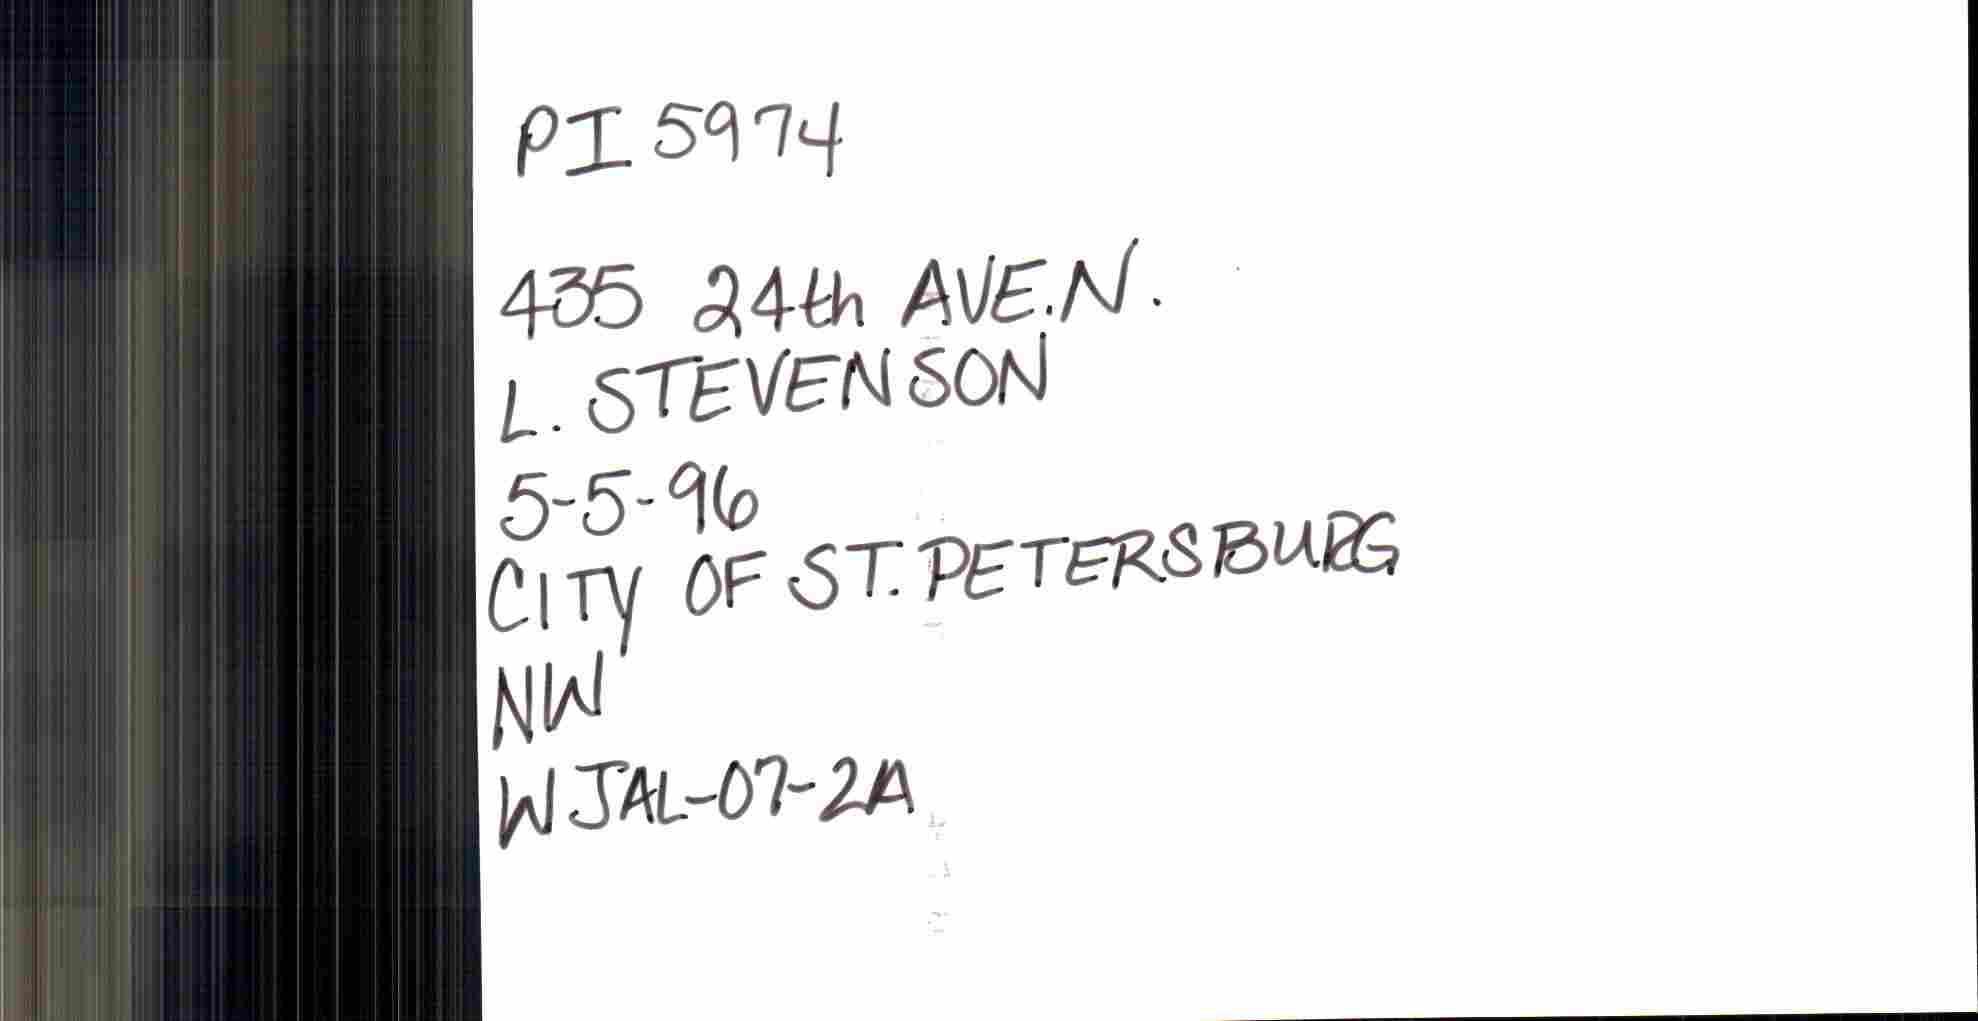 PI 5974
435 24th AVE.N.
L. STEVENSON
5-5-96
CITY OF ST. PETERSBURG
NW
WJAL-07-2A